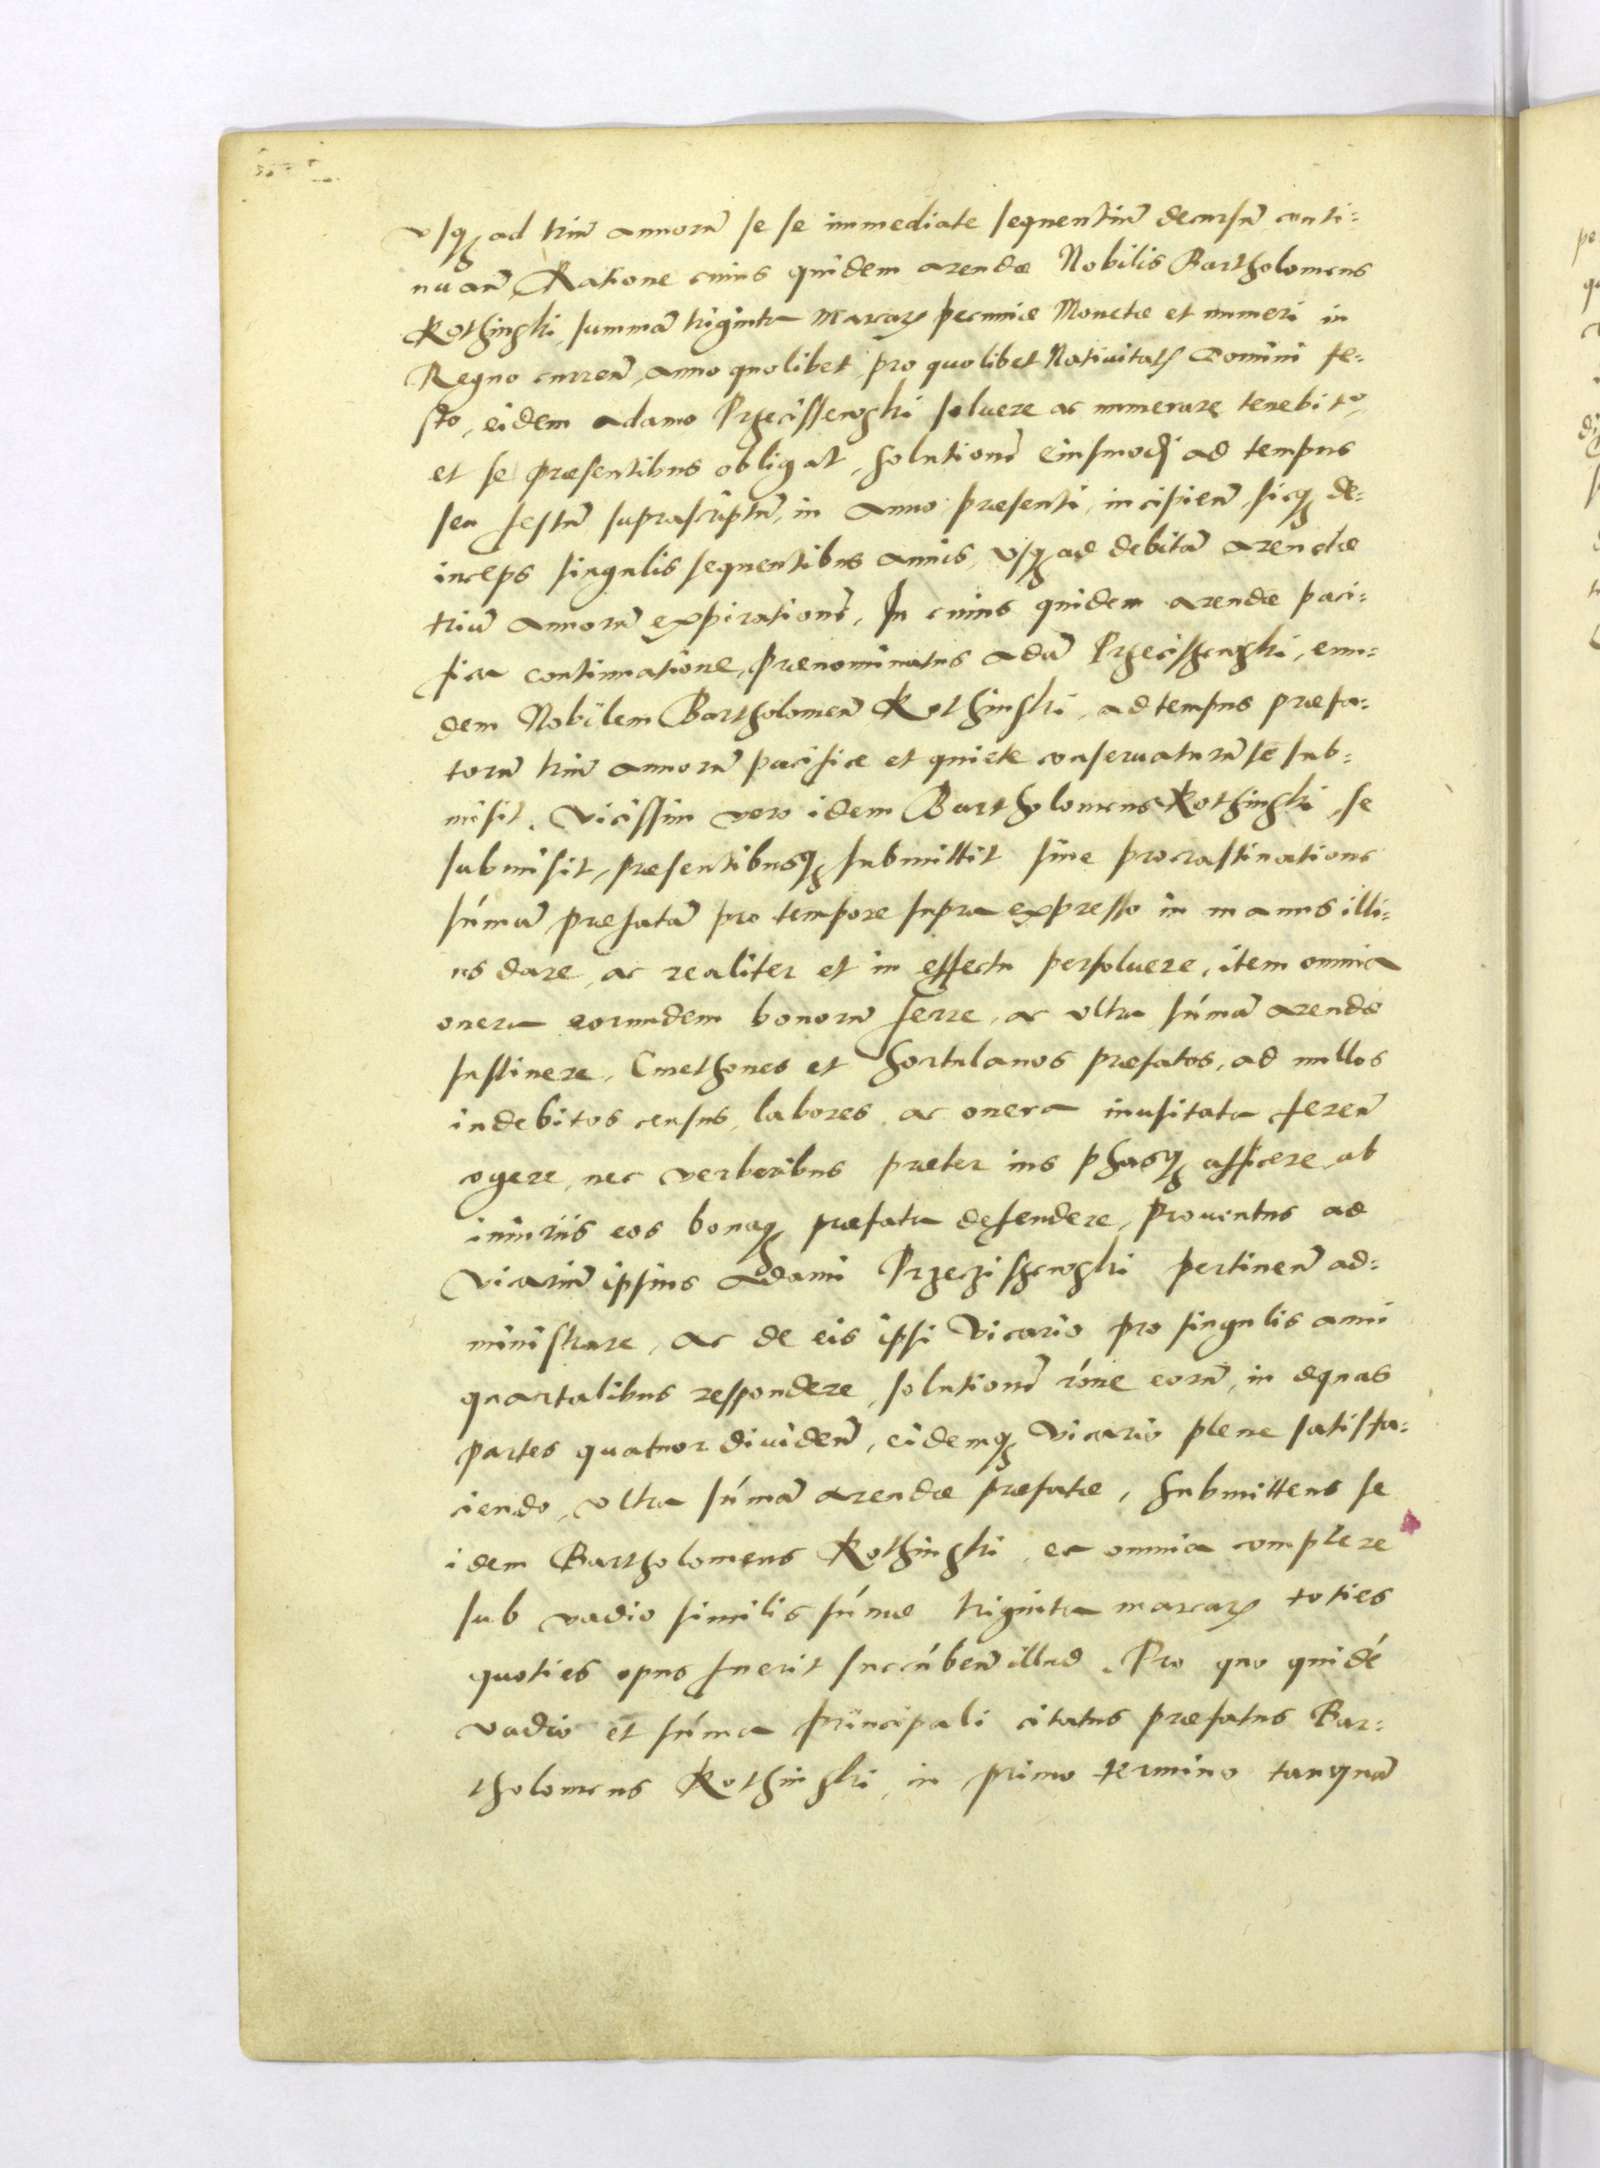 vsq₃ ad triũ annorũ se se immediate sequentiũ decursũ conti=
nuañ, Ratione cuius quidem arendæ Nobilis Bartholomeus
Kothinski, summã triginta marcaꝝ pecuniæ Monetæ et numeri in
Regno curreñ, anno quolibet, pro quolibet Natiuitatꝭ Domini fe=
sto, eidem Adamo Przecissewski soluere ac numerare tenebit᷑
et se præsentibus obligat, solutionẽ eiusmodi ad tempus
seu festũ suprascriptũ, in Anno præsenti, incipieñ, sicq₃ de=
inceps singulis sequentibus annis, vsq₃ ad debitã arendæ
triũ annorũ expirationẽ, In cuius quidem arendæ paci=
fica continuatione, prænominatus Adã Przeciszewski, eun=
dem Nobilem Bartholomeũ Kothinski, ad tempus præfa=
torũ triũ annorũ pacificæ et quiete conseruaturũ se sub=
misit. Vicissim vero idem Bartholomeus Kothinski, se
submisit, præsentibusq₃ submittit sine procrastinatione
sum̃ã præfatã pro tempore supra expresso in manus illi=
us dare, ac realiter et in effectu persoluere, item omnia
onera eorundem bonorũ ferre, ac vltra sum̃ã arendæ
sustinere, Cmethones et Hortulanos præfatos, ad nullos
indebitos census, labores, ac onera inusitata fereñ
cogere, nec verberibus præter ius phasq₃ afficere, ab
iniuriis eos bonaq₃ præfata defendere, Prouentus ad
Vicariũ ipsius Adami Przecziszewski pertineñ ad=
ministrare, ac de eis ipsi Vicario pro singulis anni
quartalibus respondere, solutionẽ róne eorũ, in æquas
partes quatuor diuideñ, eidemq₃ Vicario plene satisfa=
ciendo, vltra sum̃ã arendæ præfatæ, Submittens se
idem Bartholomeus Kothinski, ea omnia complere
sub vadio similis sum̃æ triginta marcaꝝ toties
quoties opus fuerit succũbeñ illud. Pro quo quidẽ
vadio et sum̃a principali citatus præfatus Bar=
tholomeus Kothinski, in primo termino tanquã